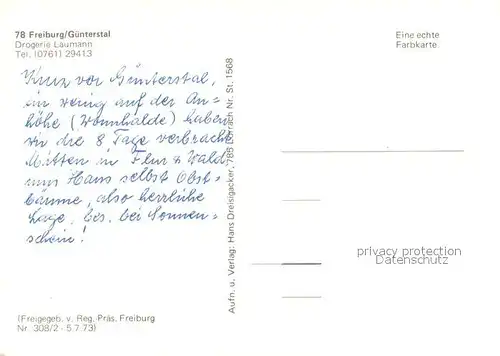 78 Freiburg/Günterstal
Drogerie Laumann
Tel. (0761) 29413
Eine echte
Farbkarte.
Kurz vor Günterstal,
ein wenig auf der An=
höhe (Wonnhalde) haben
wir die 8 Tage verbracht
Mitten in Flur & Wald,
ums Haus selbst Obst=
bäume, also herrliche
Lage, bes. bei Sonnen=
schein!
Aufn. u. Verlag: Hans Dreisigacker, 785 Lörrach Nr. St. 1568
privacy protection
Datenschutz
(Freigegeb. v. Reg.-Präs. Freiburg
Nr. 308/2 - 5.7.73)